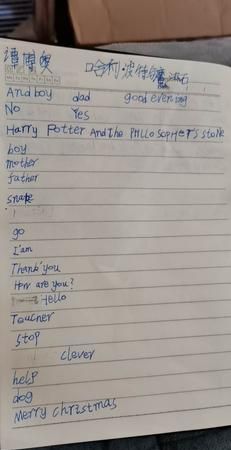 哈利·波特与魔法石
And boy dad good evening
No Yes
Harry Potter And the Philosopher's stone
boy
mother
father
snake
go
I'am
Thank you
How are you?
Hello
Teacher
stop
clever
help
dog
Merry christmas